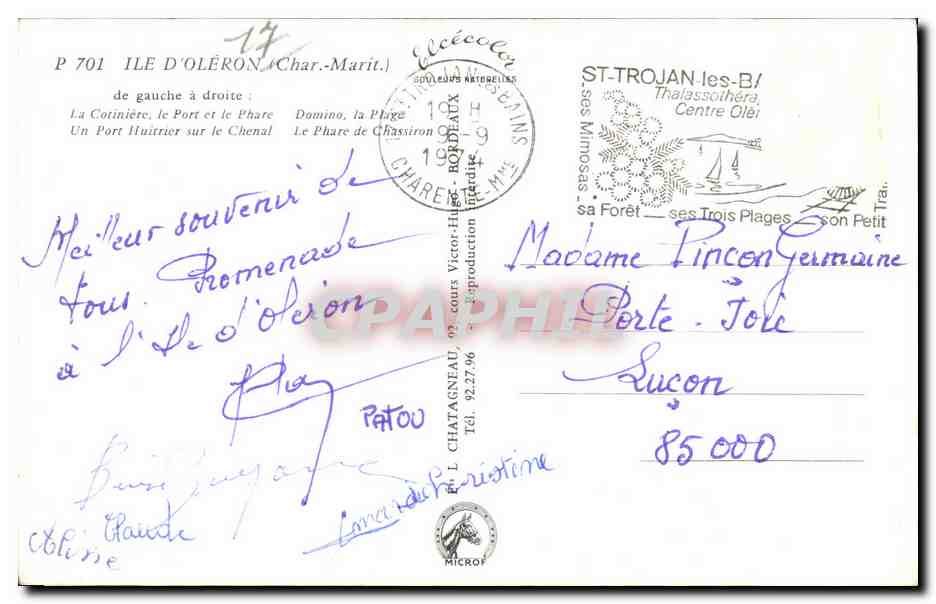 17
P 701 ILE D'OLÉRON (Char.-Marit.)
de gauche à droite :
La Cotinière, le Port et le Phare Domino, la Plage
Un Port Huîtrier sur le Chenal Le Phare de Chassiron
Meilleur souvenir de
tous. Promenade
à l'Ile d'Oleron
PATOU
Claude
Elcécolor
COULEURS NATURELLES
L. CHATAGNEAU, 92, cours Victor-Hugo - BORDEAUX
Tél. 92.27.96 - Reproduction interdite
MICROF
ST-TROJAN-les-BAINS
19 H
9-9
1974
CHARENTE-Mme
ST-TROJAN-les-B
Thalassothéra
Centre Olé
ses Mimosas
sa Forêt ses Trois Plages son Petit
Trai
Madame Pinçon Germaine
Porte. Joie
Luçon
85000
CPAPHIL